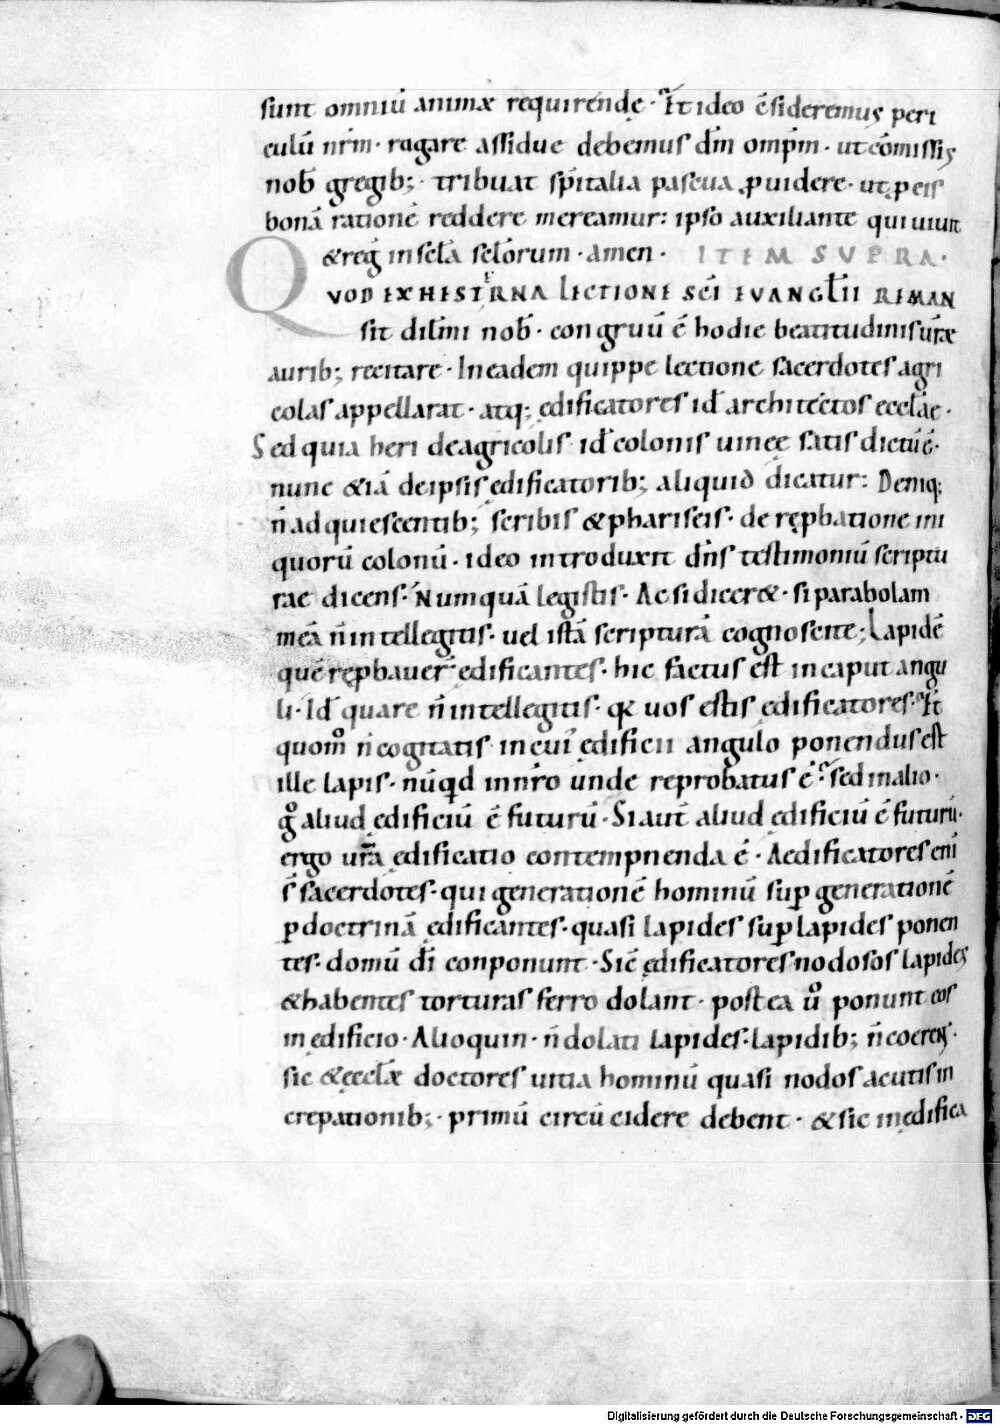 sunt omniū animæ requirende᷒. Et ideo ē sideremus peri
culū nr̄m · rogare assidue debemus dm̄ omp̄m · ut cōmissis
nob̄ gregib; · tribuat sp̄italia pascua ꝓuidere · ut ꝓ eis
bonā rationē reddere mereamur: ipso auxiliante qui uiuit
& reḡ in sc̄la sc̄lorum · amen · ITEM SUPRA ·
QUOD EX HESTERNA LECTIONE SC̄I EVANGL̄II REMAN
sit dil̄mi nob̄ · congruū ē hodie beatitudinis ur̄æ
aurib; recitare · In eadem quippe lectione sacerdotes agri
colas appellarat · atq; ędificatores id̄ architectos eccl̄ae ·
Sed quia heri de agricolis id̄ colonis uineę satis dictū ē ·
nunc & iā de ipsis ędificatorib; aliquid dicatur: Deniq;
n̄ adquiescentib; scribis & phariseis · de rep̱batione ini
quorū colonū · ideo introduxit dn̄s testimoniū scriptu
rae dicens · Numquā legistis · Ac si dicer& · si parabolam
meā n̄ intellegitis · uel istā scripturā cognoscite; Lapidē
quē rep̱bauer̄ ędificantes · hic factus est in caput angu
li · Id̄ quare n̄ intellegitis · qꝛ uos estis ędificatores · Et
quom̊ n̄ cogitatis in cui᷒ ędificii angulo ponendus est
ille lapis · nūqd in nr̄o unde reprobatus ē · sed in alio ·
g̊ aliud ędificiū ē futurū · Si aut̄ aliud ędificiū ē futurū ·
ergo ur̄a ędificatio contempnenda ē · Aedificatores eni
s̄ sacerdotes · qui generationē hominū sup̱ generationē
p̱ doctrinā ędificantes · quasi lapides sup̱ lapides ponen
tes · domū dī conponunt · Sic̄ ędificatores nodosos lapides
& habentes torturas ferro dolant · postea ů ponunt eos
in ędificio · Alioquin · n̄ dolati lapides · lapidib; n̄ coeren̄ ·
sic & eccl̄æ doctores uitia hominū quasi nodos acutis in
crepationib; · primū circūcidere debent · & sic in ędifica
Digitalisierung gefördert durch die Deutsche Forschungsgemeinschaft - DFG